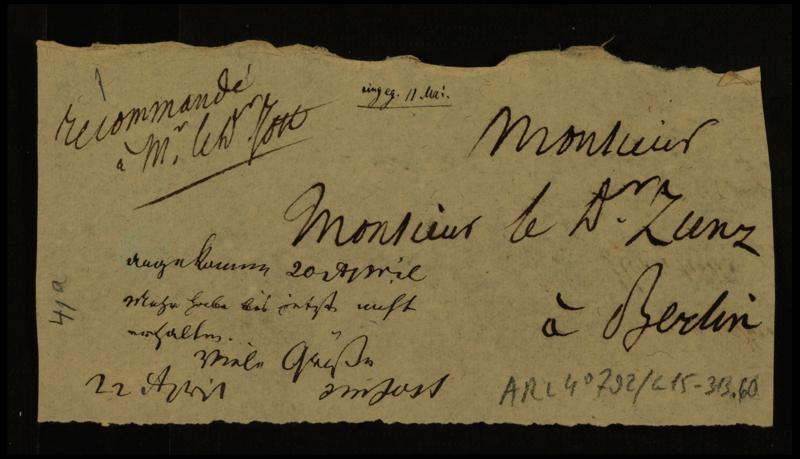 recommandé
à Mr. le Dr Jost
eingeg. 11 Mai.
Monsieur
Monsieur le Dr. Zunz
à Berlin
angekommen 20 April
Mehr habe bis jetzt nicht
erhalten.
Viele Grüße
22 April Jost
ARC 4° 792/G15-313.60
41a